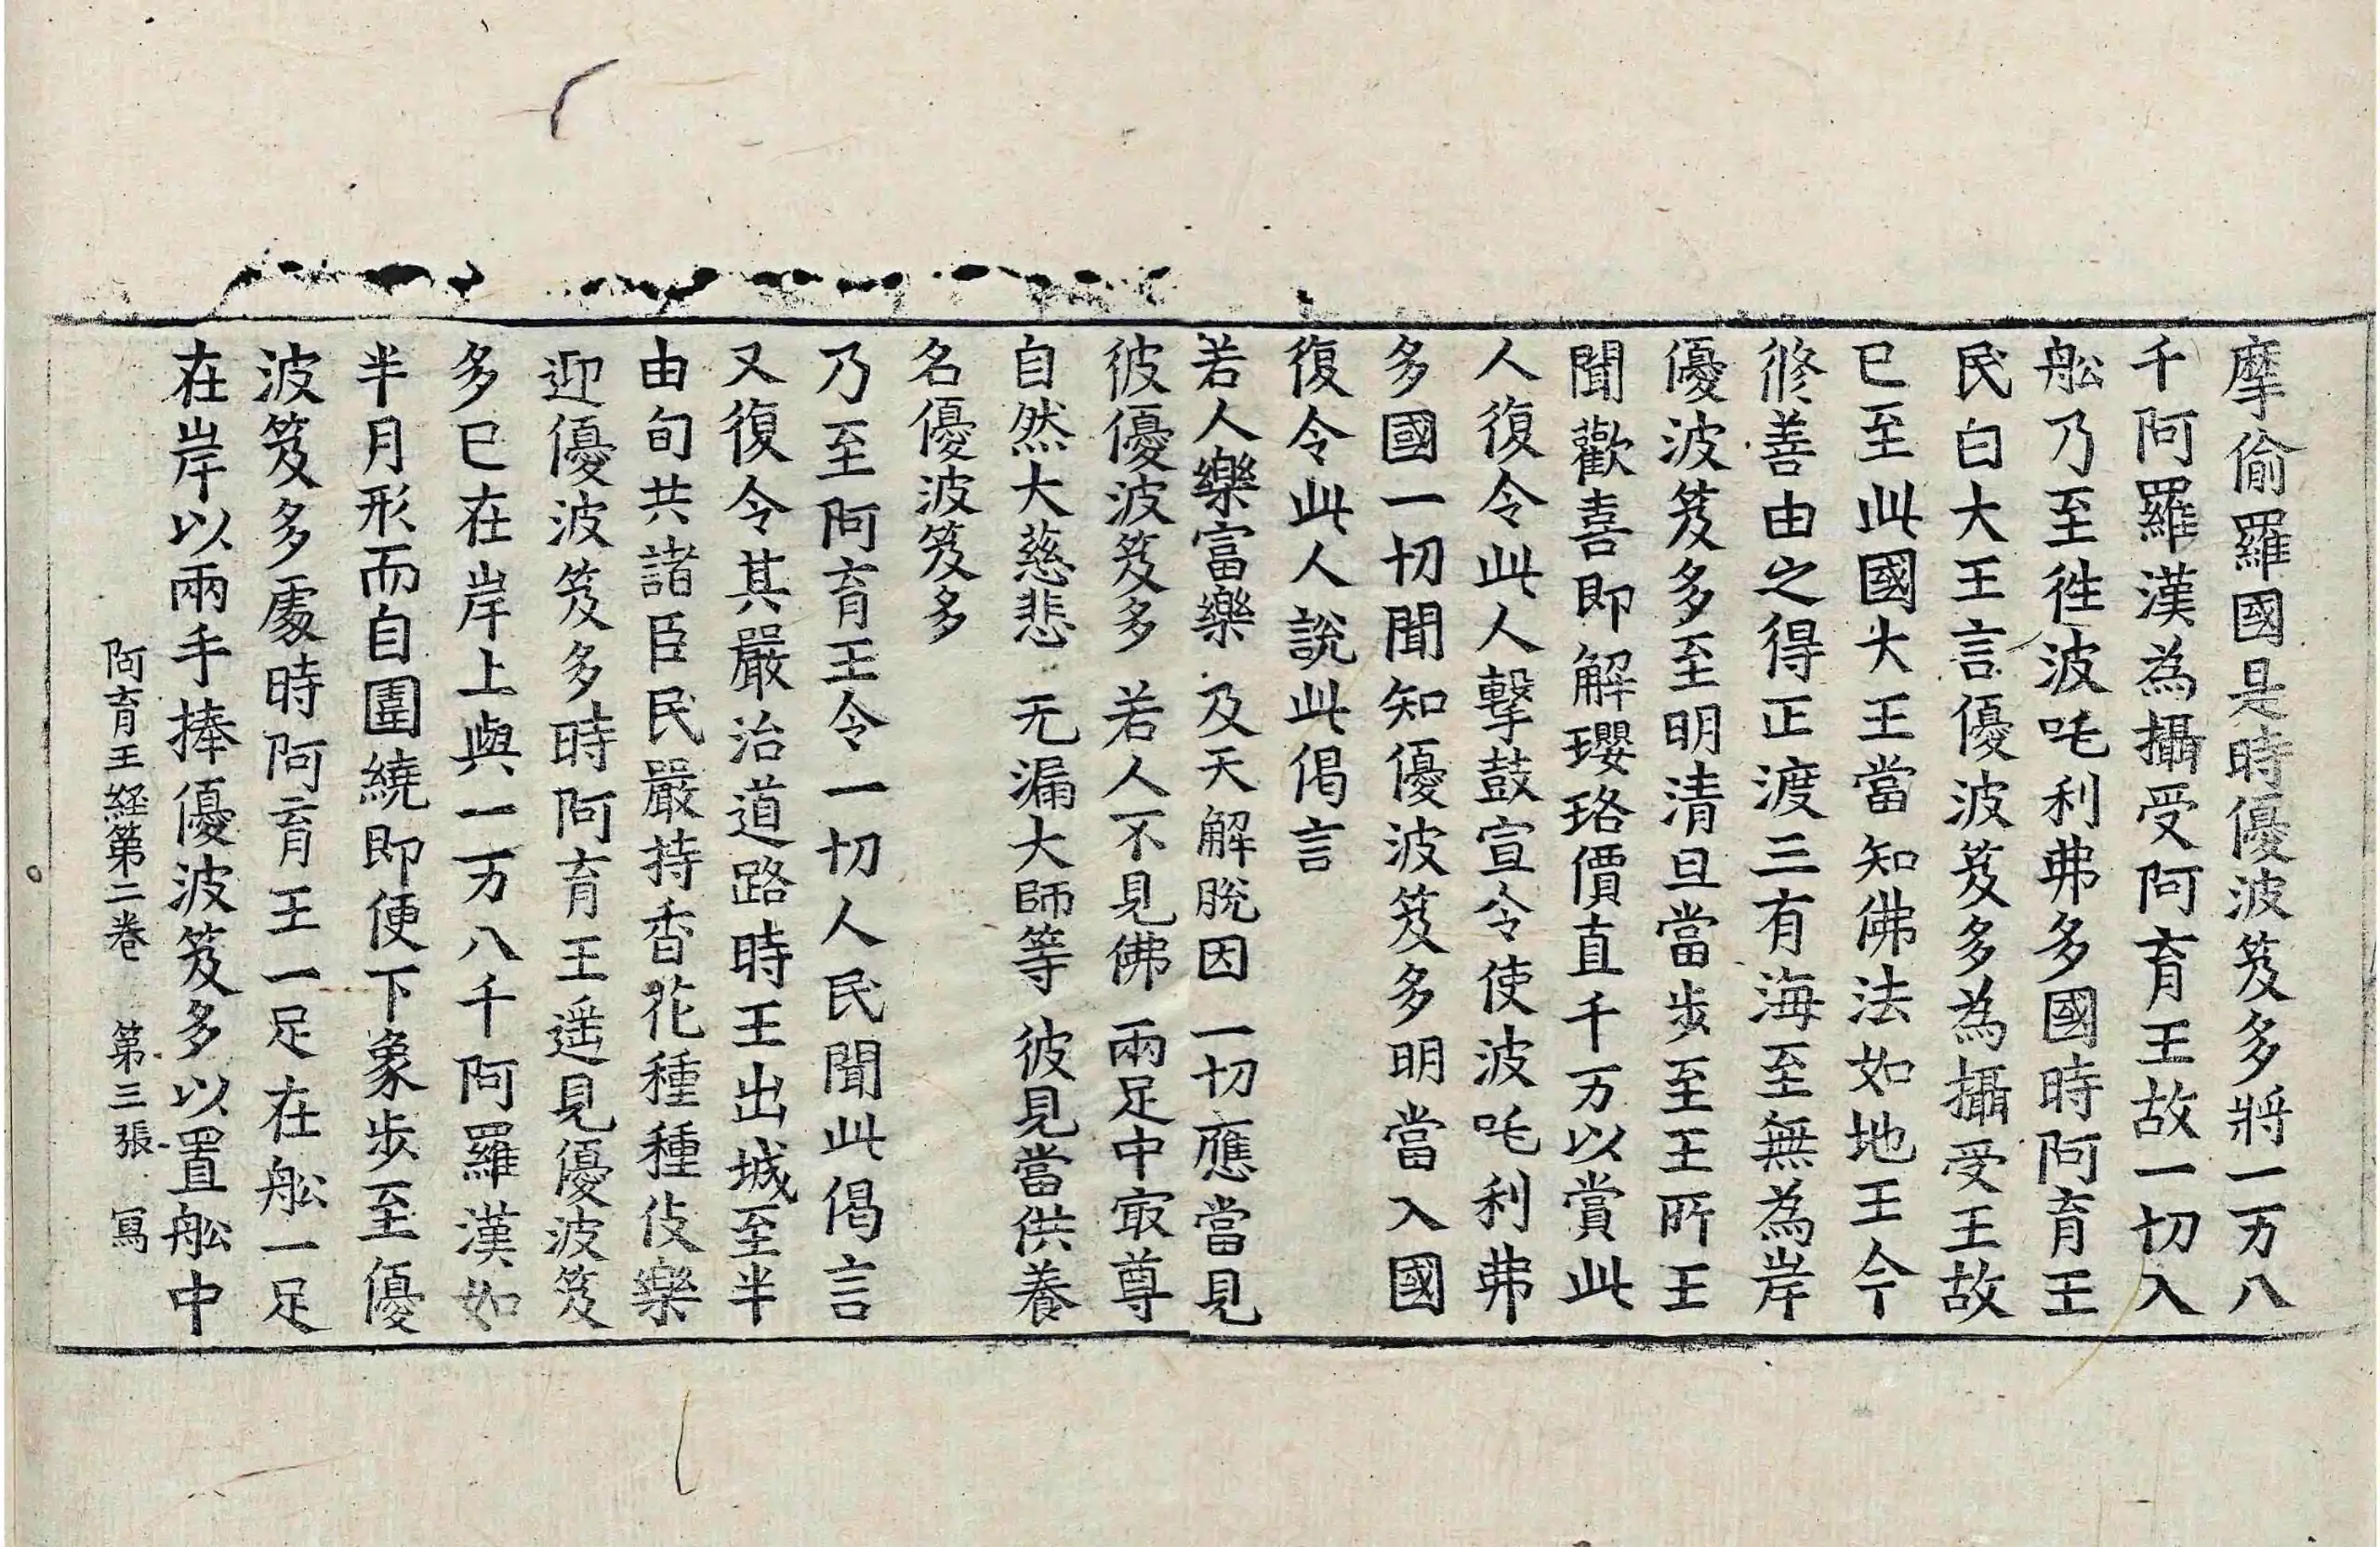 摩偷羅國是時優波笈多將一万八
千阿羅漢為攝受阿育王故一切入
舩乃至徃波吒利弗多國時阿育王
民白大王言優波笈多為攝受王故
已至此國大王當知佛法如地王今
修善由之得正渡三有海至無為岸
優波笈多至明清旦當步至王所王
聞歡喜即解瓔珞價直千万以賞此
人復令此人擊鼓宣令使波吒利弗
多國一切聞知優波笈多明當入國
復令此人說此偈言
若人樂富樂 及天解脫因 一切應當見
彼優波笈多 若人不見佛 兩足中㝡尊
自然大慈悲 无漏大師等 彼見當供養
名優波笈多
乃至阿育王令一切人民聞此偈言
又復令其嚴治道路時王出城至半
由旬共諸臣民嚴持香花種種伎樂
迎優波笈多時阿育王遥見優波笈
多已在岸上與一万八千阿羅漢如
半月形而自圍繞即便下象步至優
波笈多處時阿育王一足在舩一足
在岸以兩手捧優波笈多以置舩中
阿育王經第二卷 第三張 寫